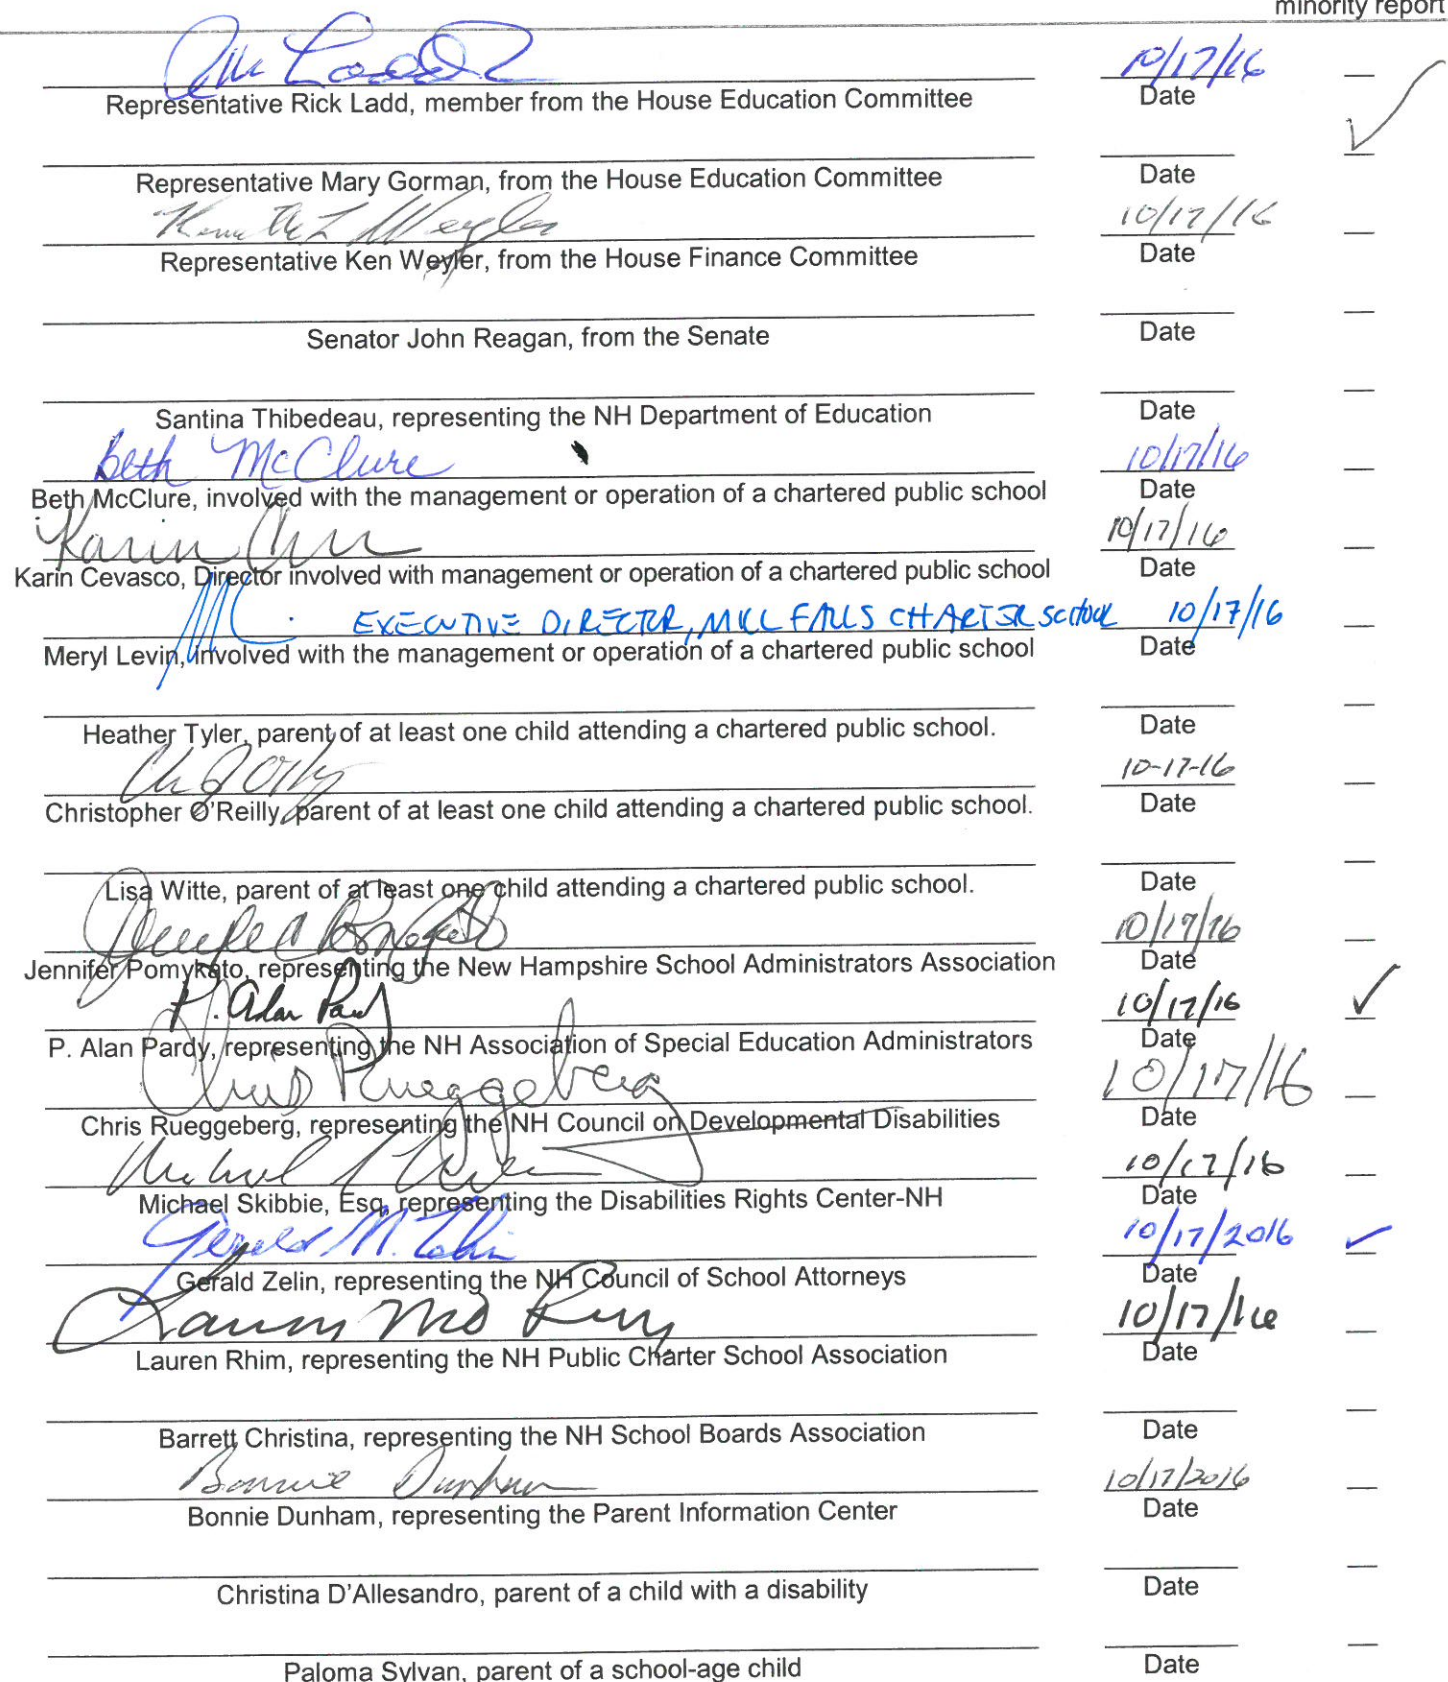 minority report
Rick Ladd 10/17/16
Representative Rick Ladd, member from the House Education Committee Date
✓
Representative Mary Gorman, from the House Education Committee Date
Kenneth L Weyler 10/17/16
Representative Ken Weyler, from the House Finance Committee Date
Senator John Reagan, from the Senate Date
Santina Thibedeau, representing the NH Department of Education Date
Beth McClure 10/17/16
Beth McClure, involved with the management or operation of a chartered public school Date
Karin 10/17/16
Karin Cevasco, Director involved with management or operation of a chartered public school Date
EXECUTIVE DIRECTOR, MILL FALLS CHARTER SCHOOL 10/17/16
Meryl Levin, involved with the management or operation of a chartered public school Date
Heather Tyler, parent of at least one child attending a chartered public school. Date
10-17-16
Christopher O'Reilly, parent of at least one child attending a chartered public school. Date
Lisa Witte, parent of at least one child attending a chartered public school. Date
Jennifer 10/17/16
Jennifer Pomykato, representing the New Hampshire School Administrators Association Date
P. Alan Pardy 10/17/16 ✓
P. Alan Pardy, representing the NH Association of Special Education Administrators Date
Chris Rueggeberg 10/17/16
Chris Rueggeberg, representing the NH Council on Developmental Disabilities Date
Michael 10/17/16
Michael Skibbie, Esq. representing the Disabilities Rights Center-NH Date
Gerald M. Zelin 10/17/2016 ✓
Gerald Zelin, representing the NH Council of School Attorneys Date
10/17/16
Lauren Rhim, representing the NH Public Charter School Association Date
Barrett Christina, representing the NH School Boards Association Date
Bonnie Dunham 10/17/2016
Bonnie Dunham, representing the Parent Information Center Date
Christina D'Allesandro, parent of a child with a disability Date
Paloma Sylvan, parent of a school-age child Date